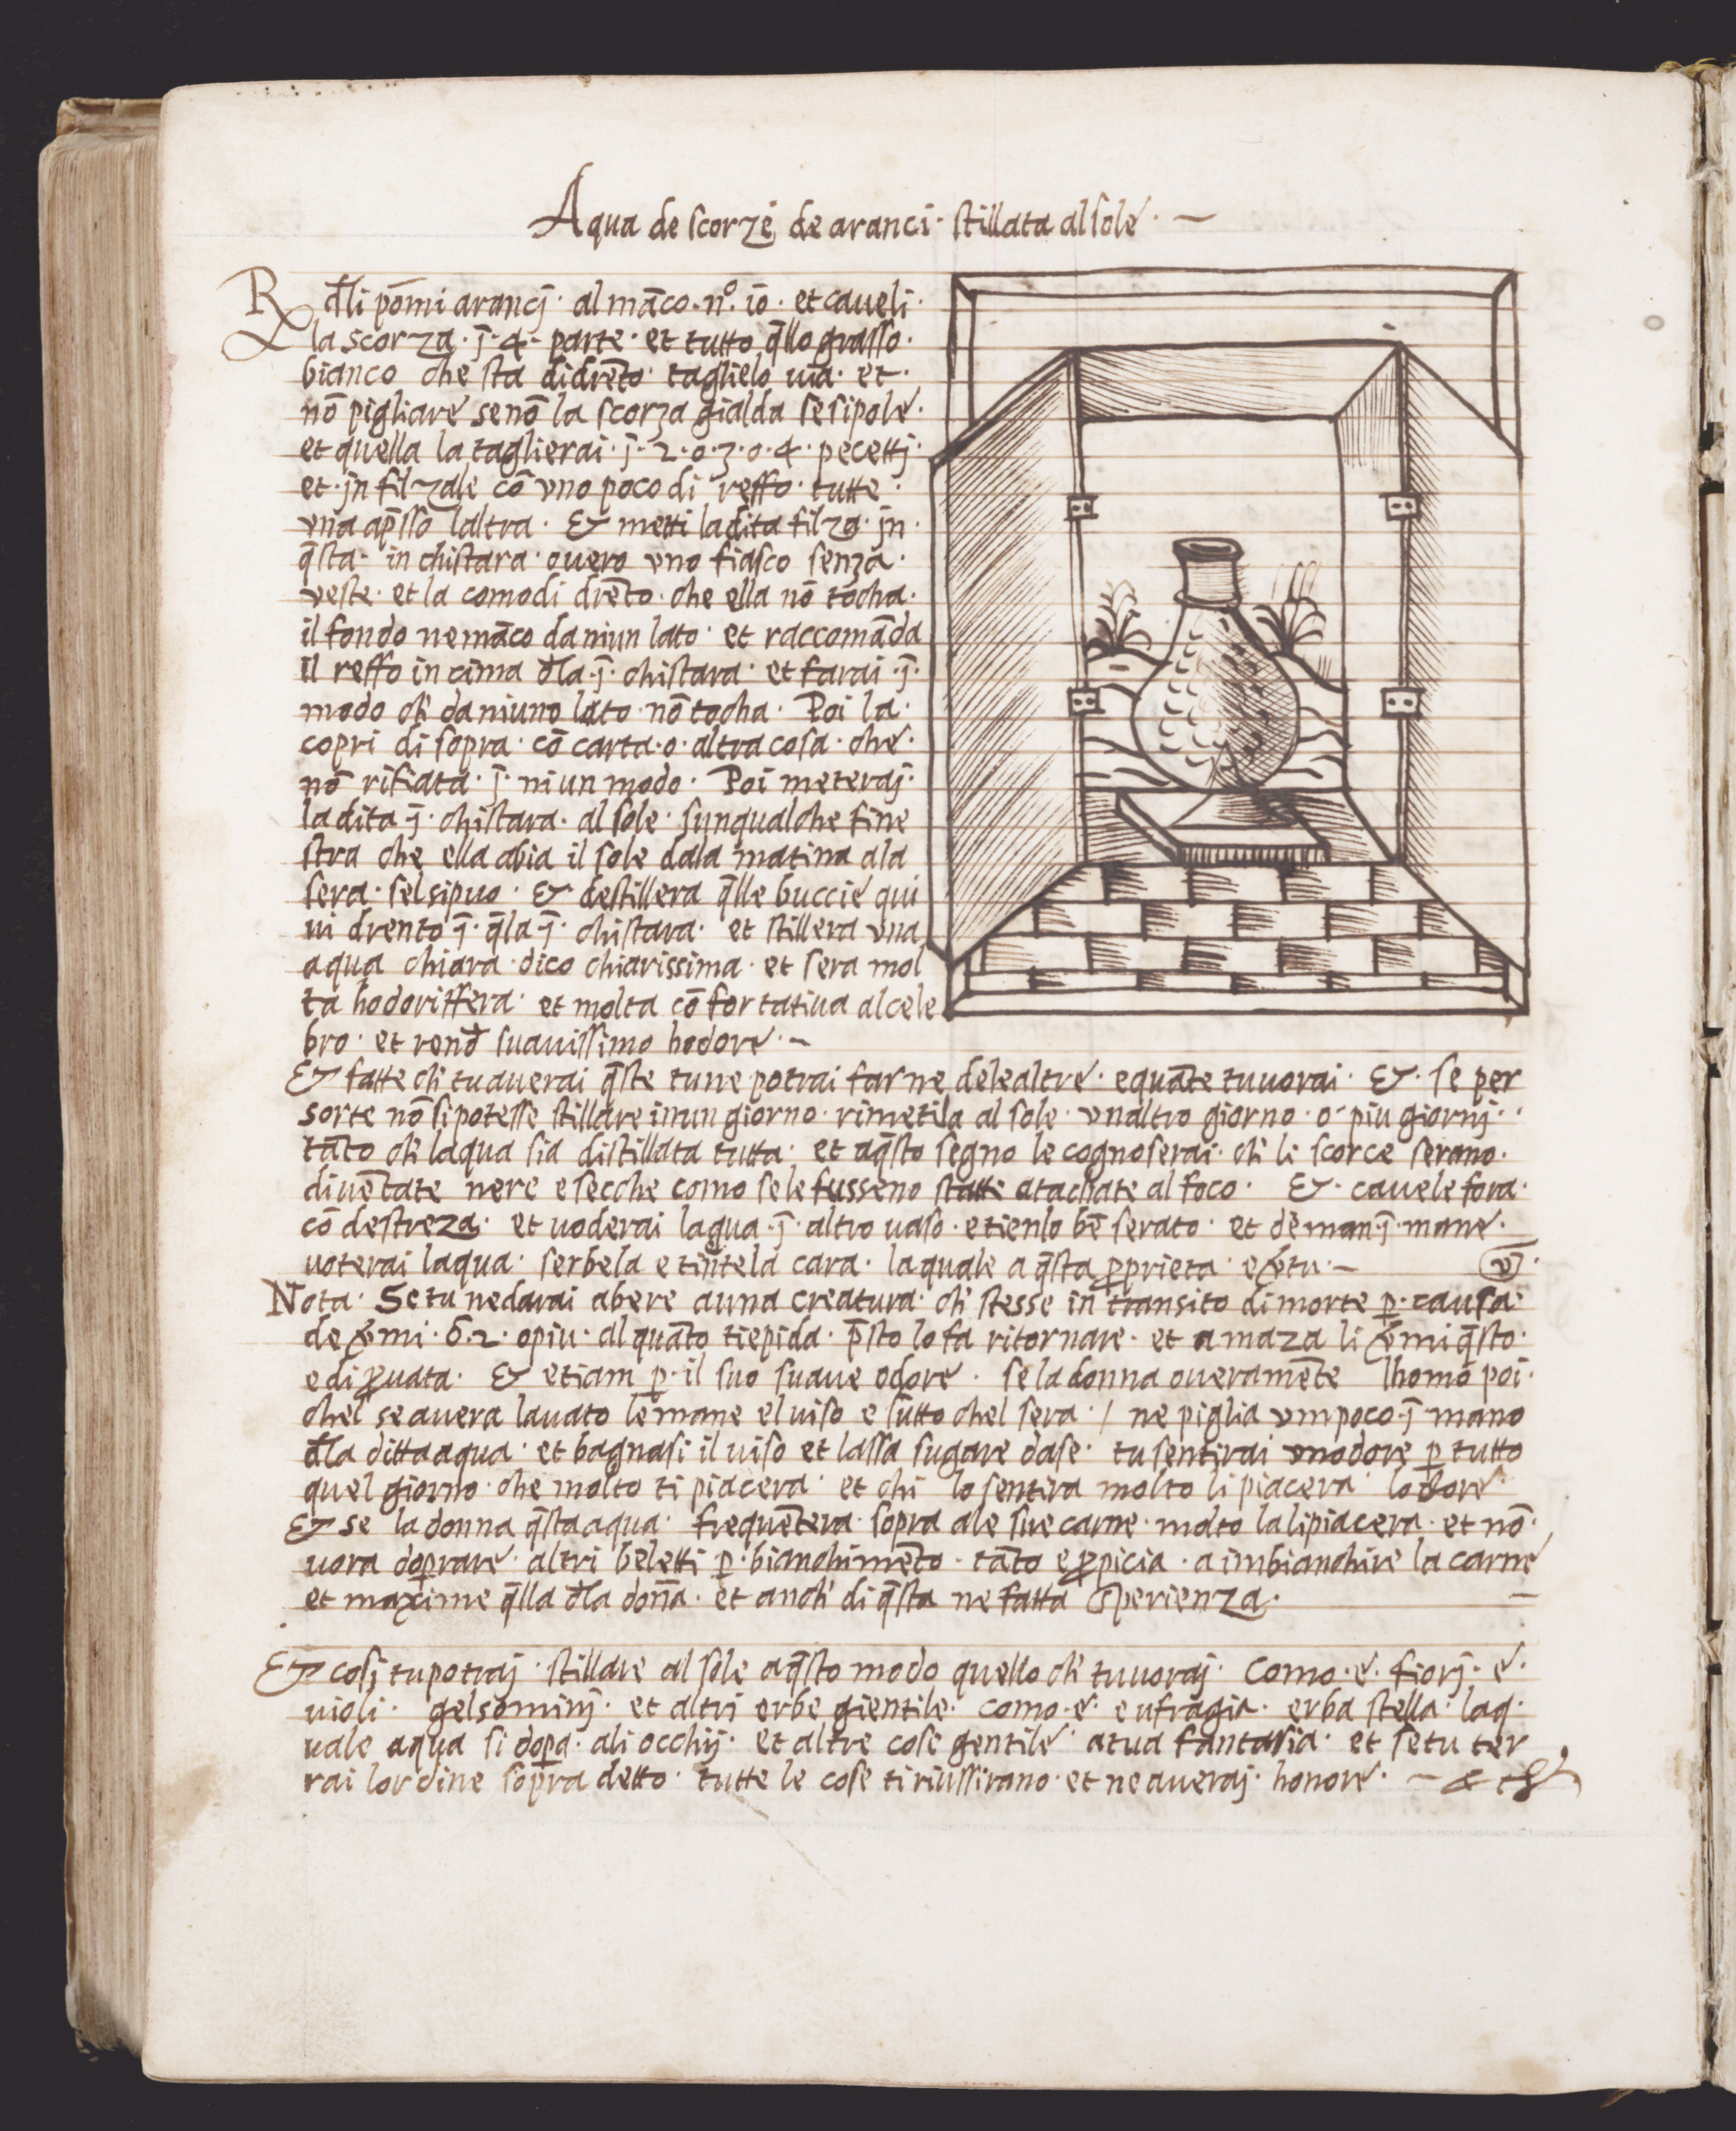 Aqua de scorze de aranci · stillata al sole · —
R dl̄i pōmi arancj · al māco · nº · io · et caueli ·
la scorza · j̄ · 4 · parte · et tutto q̄llo grasso ·
bianco che sta didrēto taglielo uia · et ·
nō pigliare senō la scorza gialda se si pole ·
et quella la taglierai · j̄ · 2 · o · 3 · o · 4 · pecettj ·
et · jnfilzale cō vno poco di reffo · tutte ·
vna ap̄sso laltra · & metti la dita filza · jn ·
q̄sta · inchistara · ouero vno fiasco senza ·
veste · et la comodi drēto · che ella nō tocha ·
il fondo ne māco da niun lato · et raccomāda
il reffo in cima dl̄a · j̄ · chistara · et farai · j̄ ·
modo ch' da niuno lato · nō tocha · Poi la ·
copri di sopra · cō carta · o · altra cosa · che ·
nō rifiata · j̄ · niun modo · Poi meteraj ·
la dita · j̄ · chistara · al sole · sunqualche fine
stra che ella abia il sole dala matina ala
sera · sel si puo · & destillera q̄lle buccie qui
ui drento · j̄ · q̄la · j̄ · chistara · et stillera vna
aqua chiara · dico chiarissima · et sera mol
ta hodoriffera · et molta cōfortatiua al cele
bro · et rend̄ suauissimo hodore · —
& fatte ch' tu auerai q̄ste tu ne potrai far ne dele altre · e quāte tu uorai · & · se per
sorte nō si potesse stillare in un giorno · rimetila al sole · vnaltro giorno · o · piu giornj · ·
tāto ch' laqua sia distillata tutta · et a q̄sto segno le cognoserai · ch' le scorce serano ·
diuētate nere e secche como se le fusseno statte atachate al foco · & · cauele fora ·
cō destreza · et uoderai laqua · j̄ · altro uaso · e tienlo bē serato · et de man · j̄ · mane ·
uoterai laqua · serbela e tiñtela cara · laquale a q̄sta ꝓprieta · e v̄tu · — v ·
Nota · Se tu ne darai a bere a una creatura · ch' stesse in transito di morte ꝑ · causa ·
de v̄mi · 2 · o piu · al quāto tiepida · p̄sto lo fa ritornare · et amaza li v̄mi q̄sto ·
e di ꝓuata · & etiam ꝑ · il suo suaue odore · se la donna oueramēte lhomo poi ·
chel se auera lauato le mane el uiso e sutto chel sera · / ne piglia vm poco · j̄ mano
dl̄a ditta aqua · et bagnasi il uiso et lassa sugare dase · tu sentirai vnodore ꝑ tutto
quel giorno · che molto ti piacera · et chi lo sentira molto li piacera lodore ·
& se la donna q̄sta aqua · frequētera · sopra ale sue carne · molto la li piacera · et nō ·
uora doprare · altri beletti ꝑ · bianchimēto · tāto e ꝓpicia · a imbianchire la carne
et maxime q̄lla dl̄a donn̄a · et anch' di q̄sta ne fatta sperienza · —
& cosj tu potraj · stillare al sole a q̄sto modo quello ch' tu uoraj · Como · e · fiorj · e ·
uioli · gelsominj · et altri erbe gientile · como · e · eufragia · erba stella · laq ·
uale aqua si dopa · ali occhij · et altre cose gentile · a tua fantasia · et se tu ter
rai lordine sopra detto · tutte le cose ti riussirano · et ne aueraj · honore · —